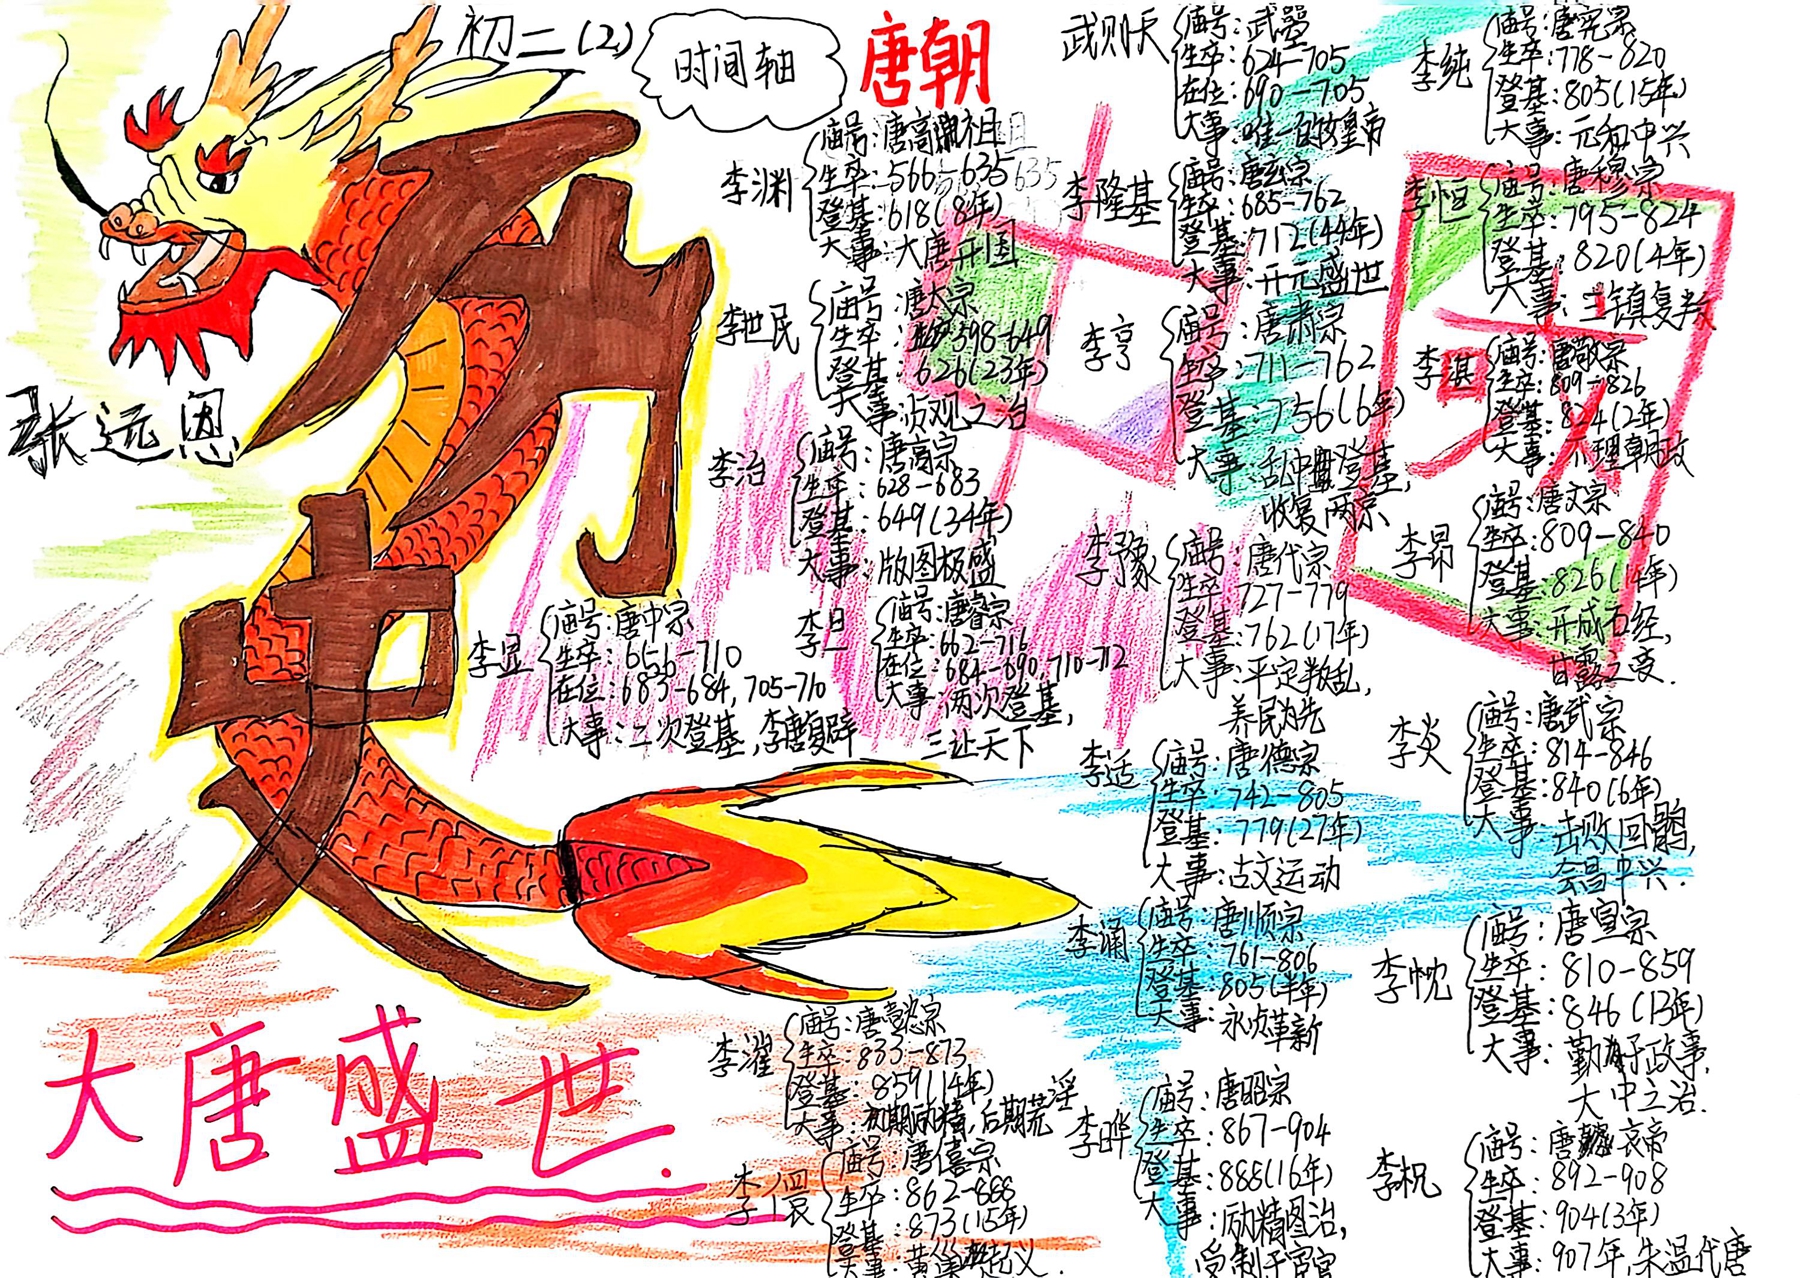 初二(2)
时间轴
唐朝
张远恩
历史
大唐盛世.
李渊
庙号:唐高祖
生卒:566-635
登基:618(8年)
大事:大唐开国
李世民
庙号:唐太宗
生卒:598-649
登基:626(23年)
大事:贞观之治
李治
庙号:唐高宗
生卒:628-683
登基:649(34年)
大事:版图极盛
李显
庙号:唐中宗
生卒:656-710
在位:683-684,705-710
大事:二次登基,李唐复辟
李旦
庙号:唐睿宗
生卒:662-716
在位:684-690,710-712
大事:两次登基,
三让天下
武则天
庙号:武曌
生卒:624-705
在位:690-705
大事:唯一女皇帝
李隆基
庙号:唐玄宗
生卒:685-762
登基:712(44年)
大事:开元盛世
李亨
庙号:唐肃宗
生卒:711-762
登基:756(6年)
大事:乱中登基,
收复两京
李豫
庙号:唐代宗
生卒:727-779
登基:762(17年)
大事:平定叛乱,
养民为先
李适
庙号:唐德宗
生卒:742-805
登基:779(27年)
大事:古文运动
李涌
庙号:唐顺宗
生卒:761-806
登基:805(半年)
大事:永贞革新
李纯
庙号:唐宪宗
生卒:778-820
登基:805(15年)
大事:元和中兴
李恒
庙号:唐穆宗
生卒:795-824
登基:820(4年)
大事:三镇复叛
李湛
庙号:唐敬宗
生卒:809-826
登基:824(2年)
大事:不理朝政
李昂
庙号:唐文宗
生卒:809-840
登基:826(14年)
大事:开成石经,
甘露之变.
李炎
庙号:唐武宗
生卒:814-846
登基:840(6年)
大事:击败回鹘,
会昌中兴.
李忱
庙号:唐宣宗
生卒:810-859
登基:846(13年)
大事:勤于政事,
大中之治.
李漼
庙号:唐懿宗
生卒:833-873
登基:859(14年)
大事:初期励精,后期荒淫
李儇
庙号:唐僖宗
生卒:862-888
登基:873(15年)
大事:黄巢起义.
李晔
庙号:唐昭宗
生卒:867-904
登基:888(16年)
大事:励精图治,
受制于宦官
李柷
庙号:唐哀帝
生卒:892-908
登基:904(3年)
大事:907年,朱温代唐